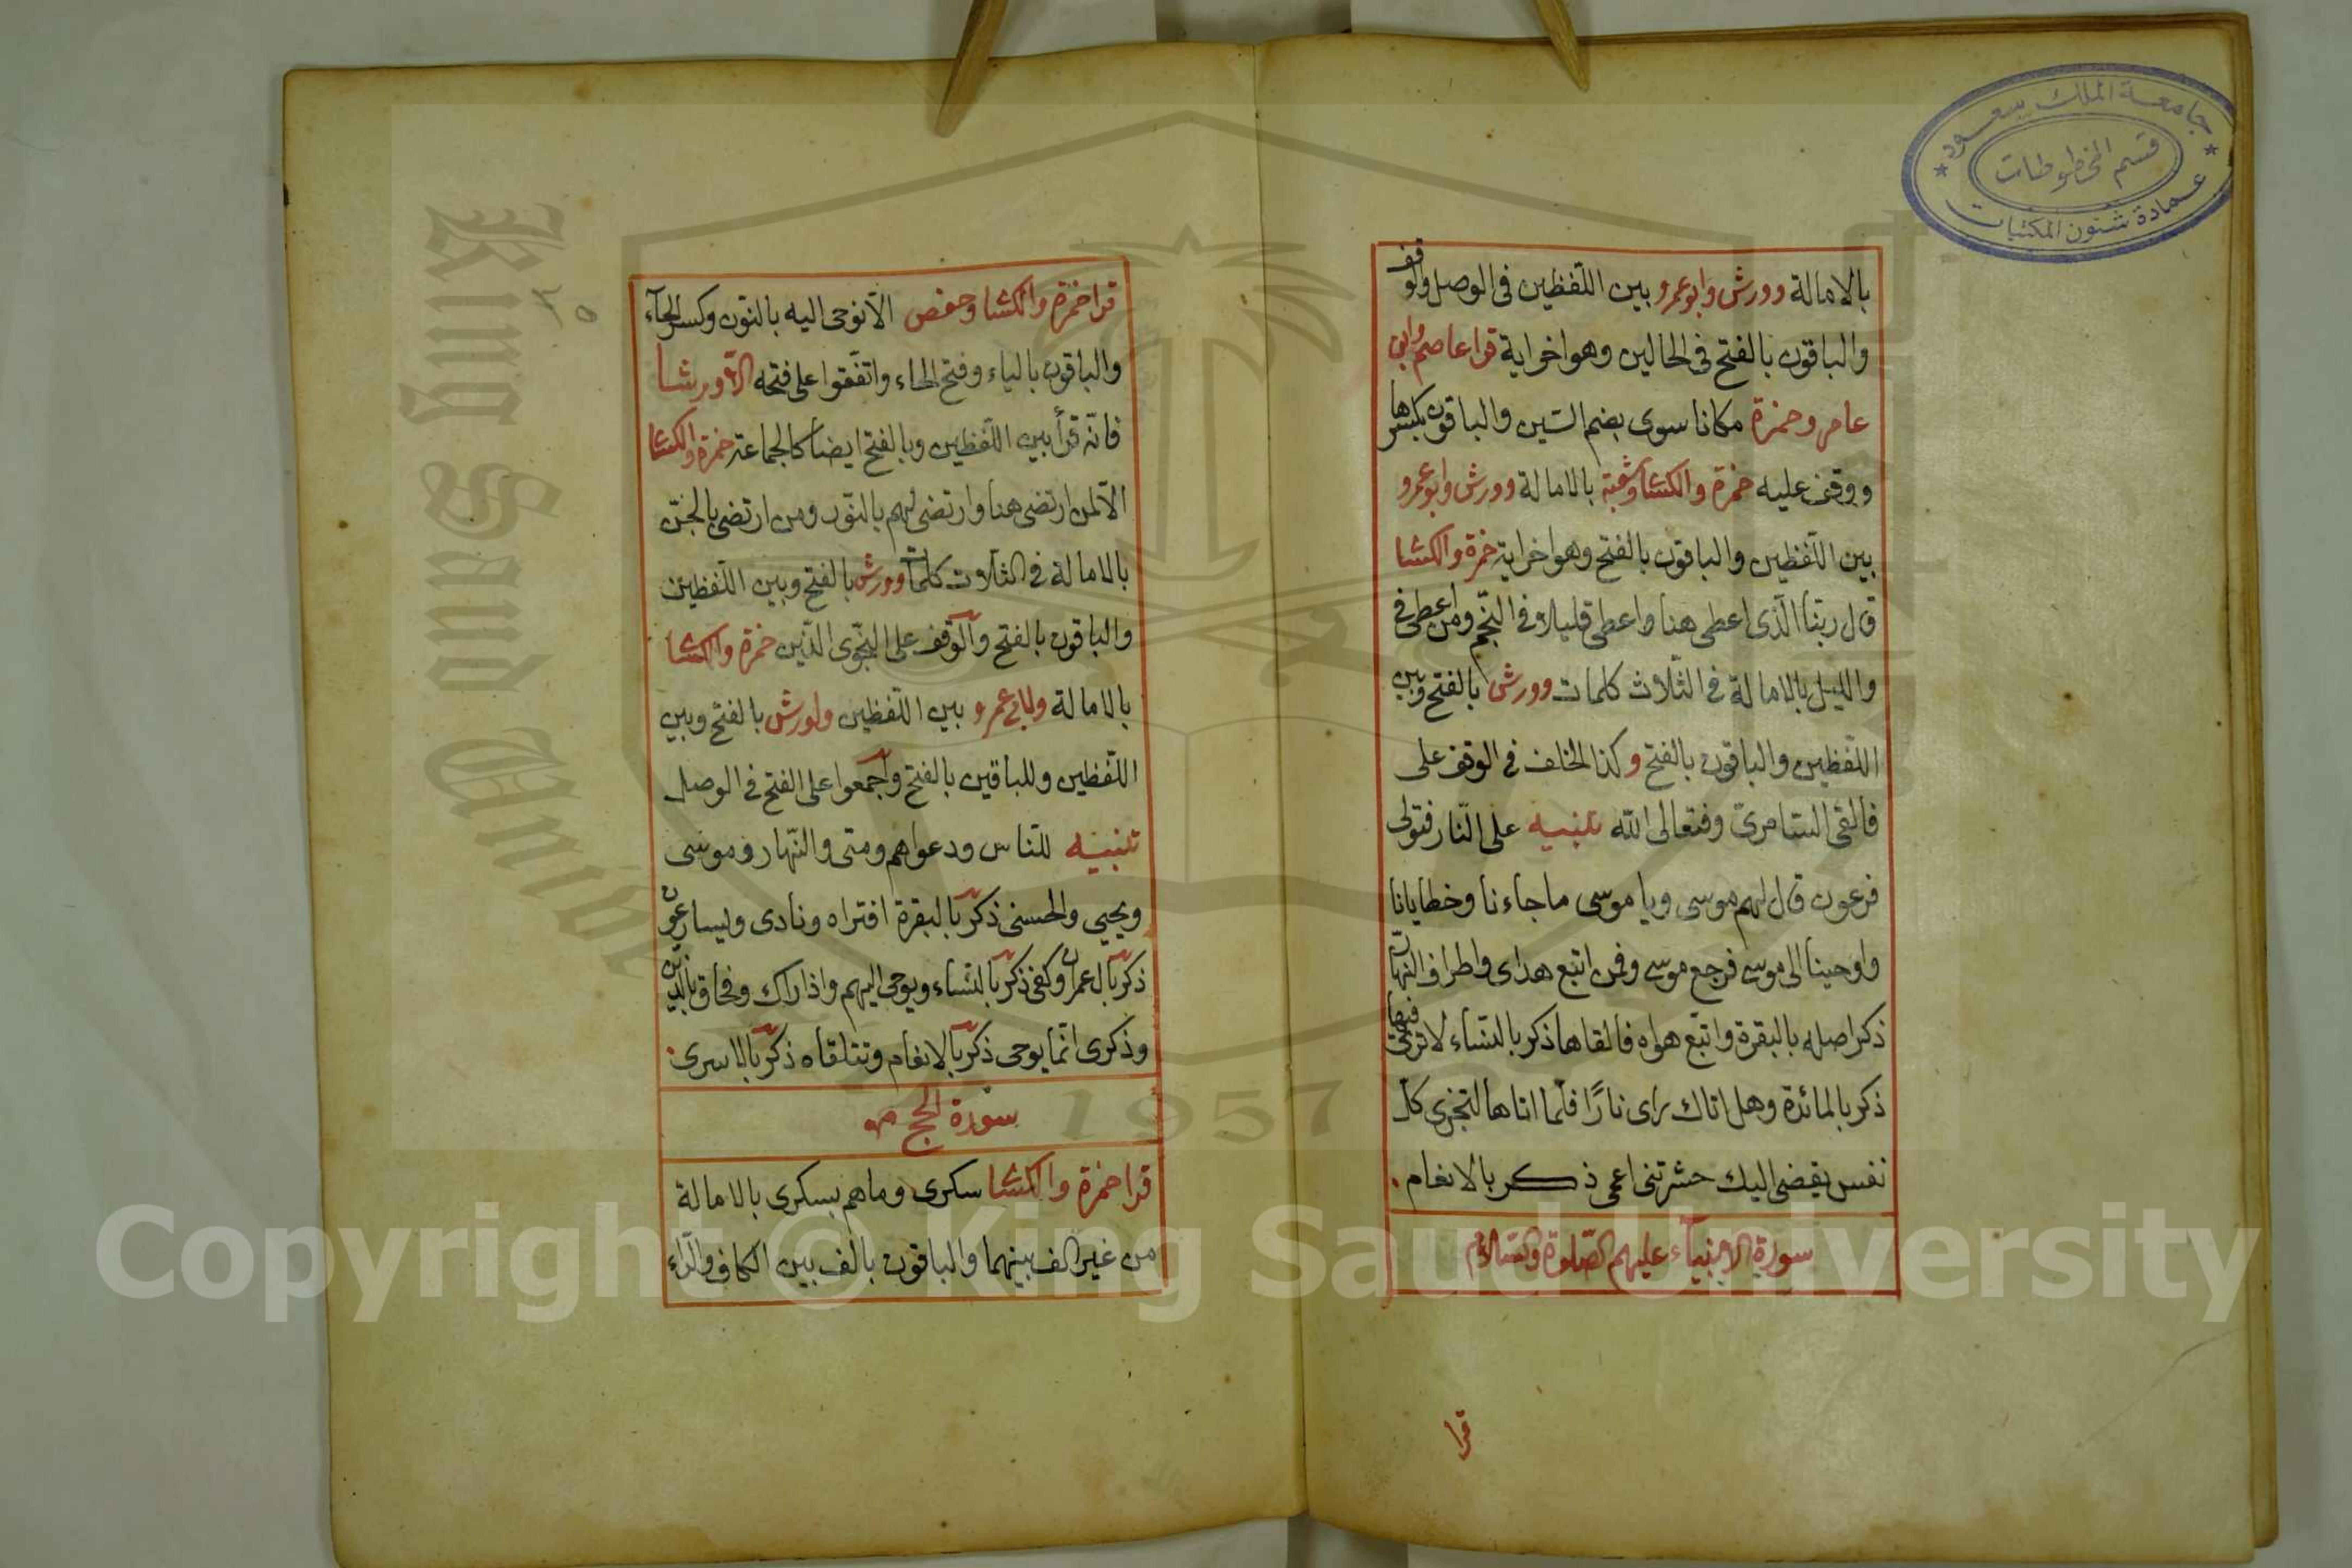 جامعة الملك سعود
قسم المخطوطات
عمادة شئون المكتبات
بالامالة وورش وابوعمرو بين اللفظين فى الوصل والوقف
والباقون بالفتح فى الحالين وهو اخر اية قرا عاصم وابن
عامر وحمزة مكانا سوى بضم السين والباقون بكسرها
ووقف عليه حمزة والكسا وشعبة بالامالة وورش وابوعمرو
بين اللفظين والباقون بالفتح وهو اخر اية حمزة والكسا
قال ربنا الذى اعطى هنا واعطى قليلا وفى النجم ومن اعطى فى
والليل بالامالة فى الثلاث كلمات وورش بالفتح وبين
اللفظين والباقون بالفتح وكذا الخلف فى الوقف على
فالقى السامرى وفتعالى الله تنبيه على النار فتولى
فرعون قال لهم موسى ويا موسى ما جاءنا وخطايانا
واوحينا الى موسى فرجع موسى وفمن اتبع هداى واطراف النهار
ذكر اصله بالبقرة واتبع هواه فالقاها ذكر بالنساء لا ترى فيها
ذكر بالمائدة وهل اتاك راى نارًا فلما اتاها لتجزى كل
نفس يقضى اليك حشرتنى اعمى ذكر بالانعام
سورة الانبياء عليهم الصلوة والسلام
قرا
قرا حمزة والكسا وحفص الا نوحى اليه بالنون وكسر الحاء
والباقون بالياء وفتح الحاء واتفقوا على فتحه الا ورشا
فانه قرأ بين اللفظين وبالفتح ايضا كالجماعة حمزة والكسا
الا لمن ارتضى هنا وارتضى لهم بالنور ومن ارتضى بالجن
بالامالة فى الثلاث كلمات وورش بالفتح وبين اللفظين
والباقون بالفتح والوقف على النجوى الذين حمزة والكسا
بالامالة ولابى عمرو بين اللفظين ولورش بالفتح وبين
اللفظين وللباقين بالفتح واجمعوا على الفتح فى الوصل
تنبيه للناس ودعواهم ومتى والنهار وموسى
ويحيى والحسنى ذكر بالبقرة افتراه ونادى ويسارعون
ذكر بال عمران وكفى ذكر بالنساء ويوحى اليهم واذا راك وفحاق بالذين
وذكرى انما يوحى ذكر بالانعام وتتلقاه ذكر بالاسرى
سورة الحج
قرا حمزة والكسا سكرى وما هم بسكرى بالامالة
من غير الف بينهما والباقون بالف بين الكاف والراء
King Saud University
1957
Copyright © King Saud University